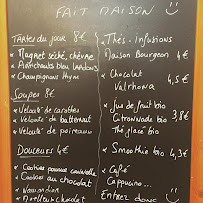 FAIT MAISON
Tartes du jour 8€
* Magret séché, chèvre
* Artichauts bleu lardons
* Champignons thym
Soupes 8€
* Velouté de carottes
* Velouté de butternut
* Velouté de poireaux
Douceurs 4€
* Cookies pomme cannelle
* Cookies au chocolat
* Meilleur chocolat
Thés - infusions
Maison Bourgeon
4€
* Chocolat
Valrhona
4,5€
* Jus de fruit bio
Citronnade bio
Thé glacé bio
3,8€
* Smoothie bio
4,3€
* Café
Cappuccino...
Entrez donc